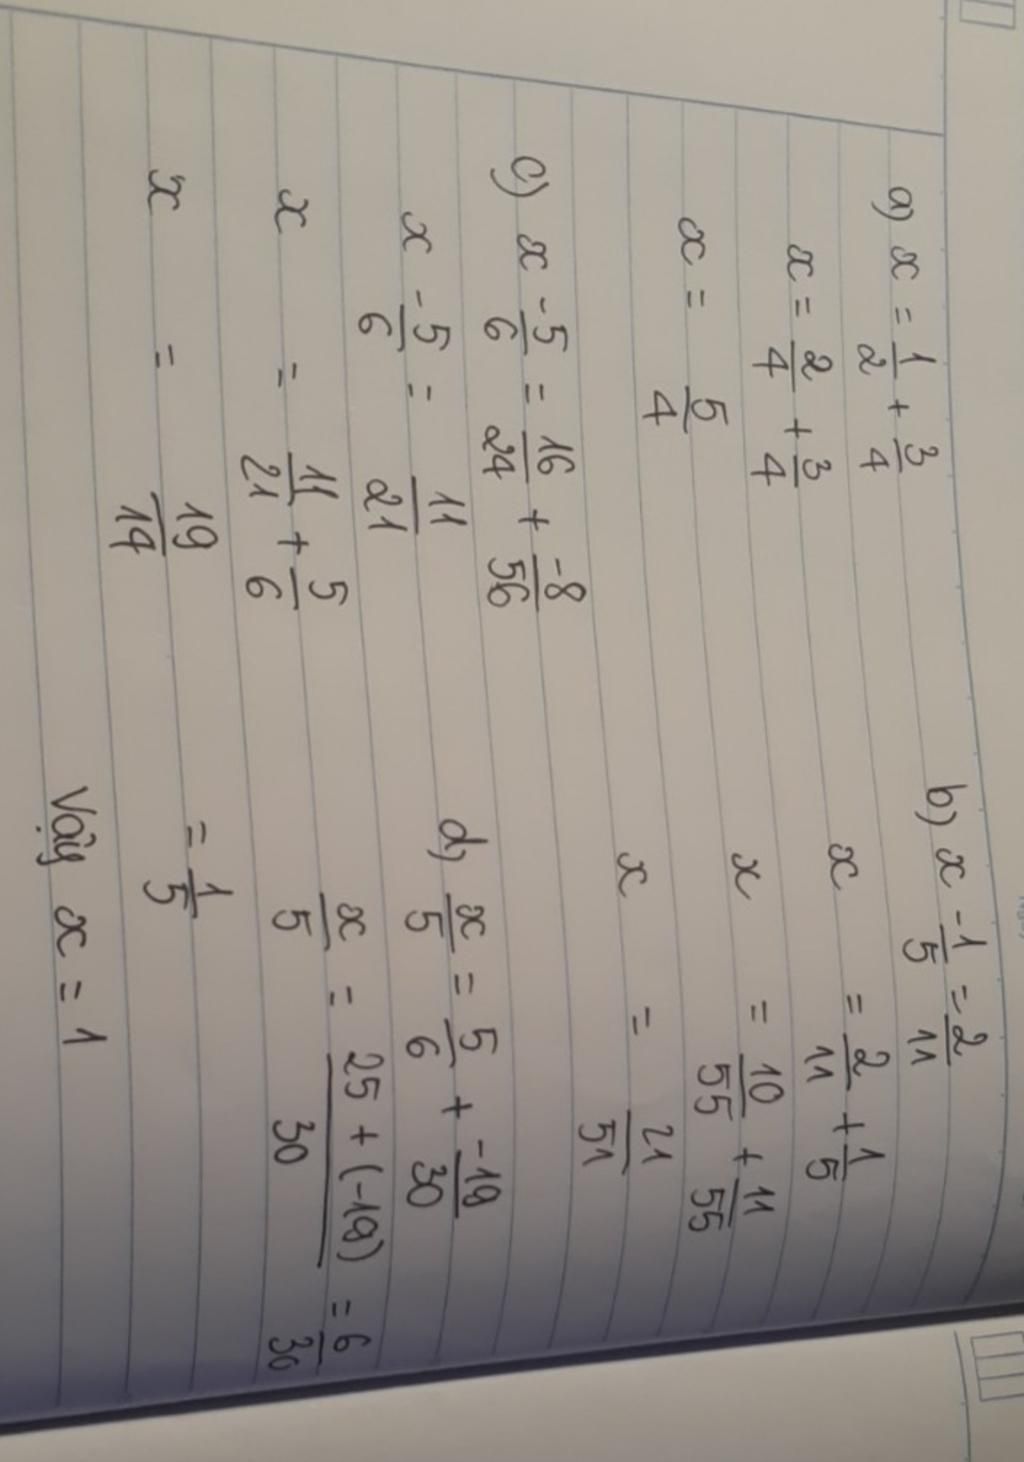 a) x = 1/2 + 3/4
x = 2/4 + 3/4
x = 5/4
b) x - 1/5 = 2/11
x = 2/11 + 1/5
x = 10/55 + 11/55
x = 21/51
c) x - 5/6 = 16/24 + -8/56
x - 5/6 = 11/21
x = 11/21 + 5/6
x = 19/14
d) x/5 = 5/6 + -19/30
x/5 = 25 + (-19)/30 = 6/30
= 1/5
Vậy x = 1